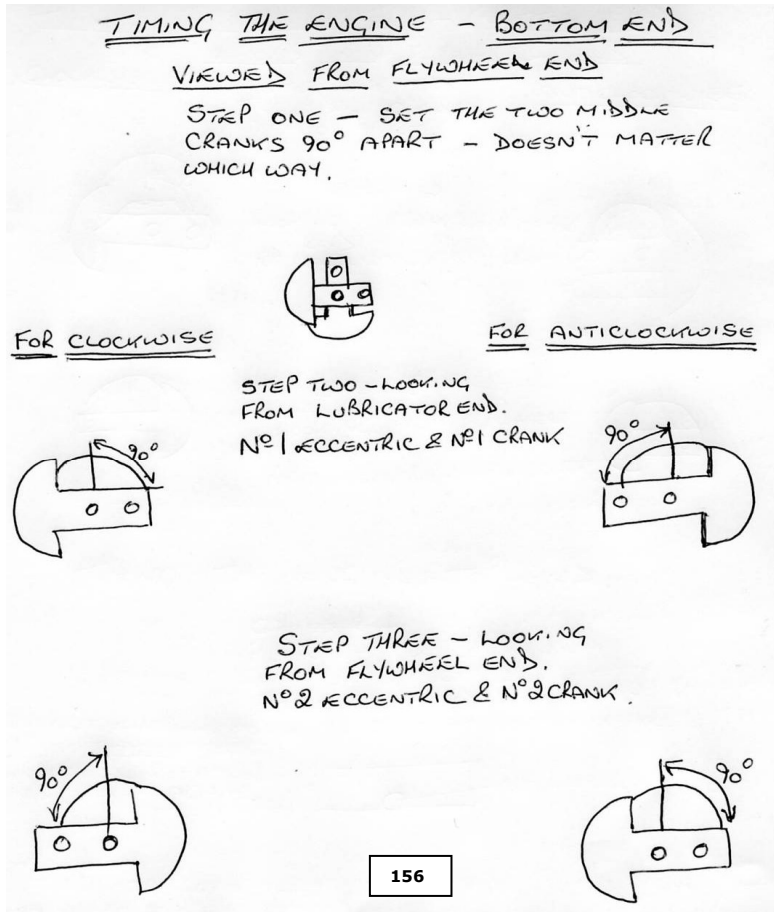 TIMING THE ENGINE - BOTTOM END
VIEWED FROM FLYWHEEL END
STEP ONE - SET THE TWO MIDDLE
CRANKS 90° APART - DOESN'T MATTER
WHICH WAY.
FOR CLOCKWISE
FOR ANTICLOCKWISE
STEP TWO - LOOKING
FROM LUBRICATOR END.
Nº1 ECCENTRIC & Nº1 CRANK
90°
90°
STEP THREE - LOOKING
FROM FLYWHEEL END.
Nº2 ECCENTRIC & Nº2 CRANK.
90°
90°
156